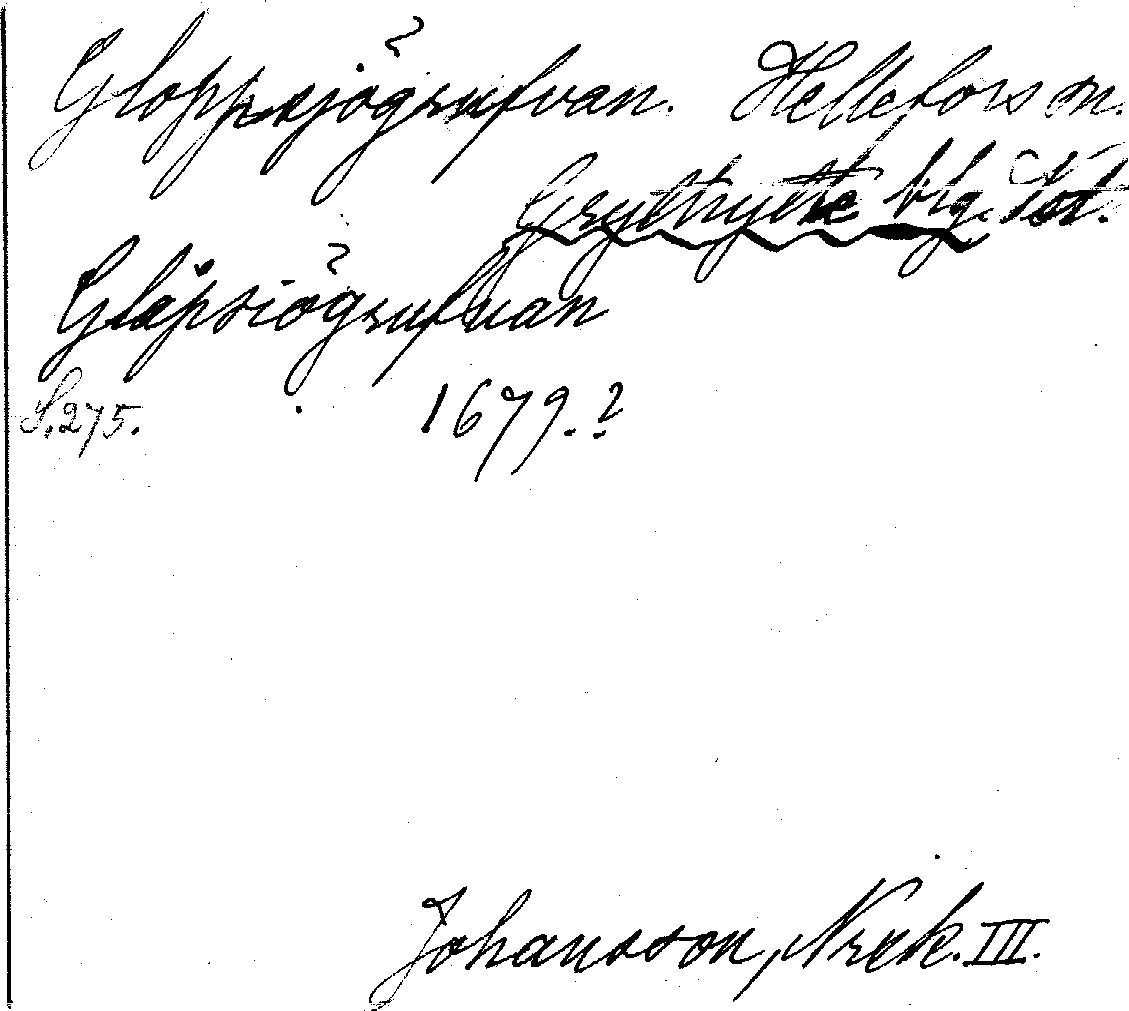 Gloppsjögrufvan. Hellefors sn.
Grythytte blg. Öst.
Glåpsiögrufvan
S. 275. 1679.?
Johansson, Nrck. III.